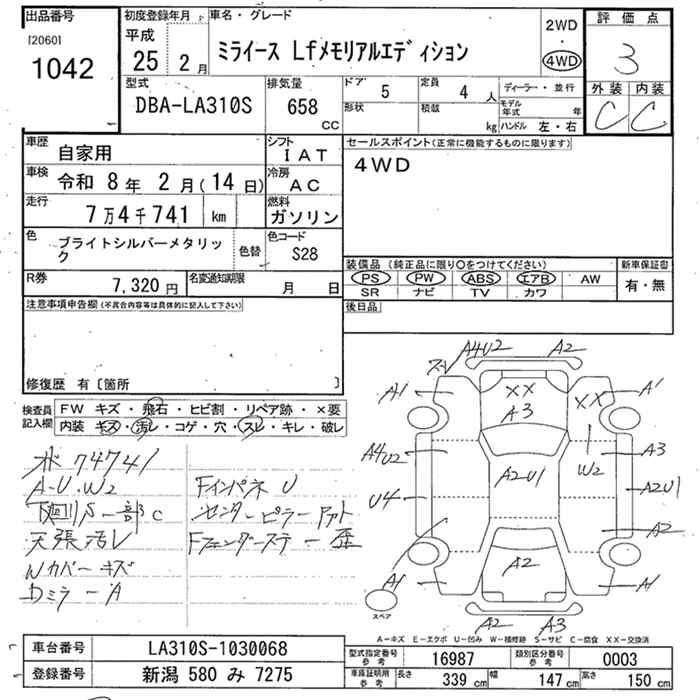 出品番号
[2060]
1042
初度登録年月
平成
25 2月
車名・グレード
ミライース Lfメモリアルエディション
2WD
4WD
評価点
3
外装 内装
C C
型式
DBA-LA310S
排気量
658
CC
ドア 5
定員 4人
形状
積載 kg
ディーラー・並行
モデル年式 年
ハンドル 左・右
車歴
自家用
シフト
IAT
車検
令和 8年 2月(14日)
冷房
AC
走行
7万4千741 km
燃料
ガソリン
色
ブライトシルバーメタリック
色替
色コード
S28
R券
7,320円
名変通知期限
月 日
セールスポイント(正常に機能するものに限ります)
4WD
装備品(純正品に限り○をつけてください)
新車保証書
PS PW ABS エアB AW
有・無
SR ナビ TV カワ
後日品
注意事項申告欄(不具合内容等は具体的に記入して下さい)
修復歴 有〔箇所 〕
検査員記入欄
FW キズ・飛石・ヒビ割・リペア跡・×要
内装・キズ・汚レ・コゲ・穴・スレ・キレ・破レ
74741
A-U.W2
下廻りS一部C
天張汚レ
Wカバーキズ
DミラーA
Fインパネ U
センターピラーアト
Fフェンダーステー歪
スレ
A4U2
A2
A1
XX
XX
A1
A3
A4U2
W2
A3
A2U1
U4
A2U1
A2
A1
A2
A1
スペア
A2
A3
A-キズ E-エクボ U-凹み W-補修跡 S-サビ C-腐食 XX-交換済
車台番号
LA310S-1030068
登録番号
新潟 580 み 7275
型式指定番号
参考
16987
類別区分番号
参考
0003
車庫証明用
参考
長さ 339 cm
幅 147 cm
高さ 150 cm